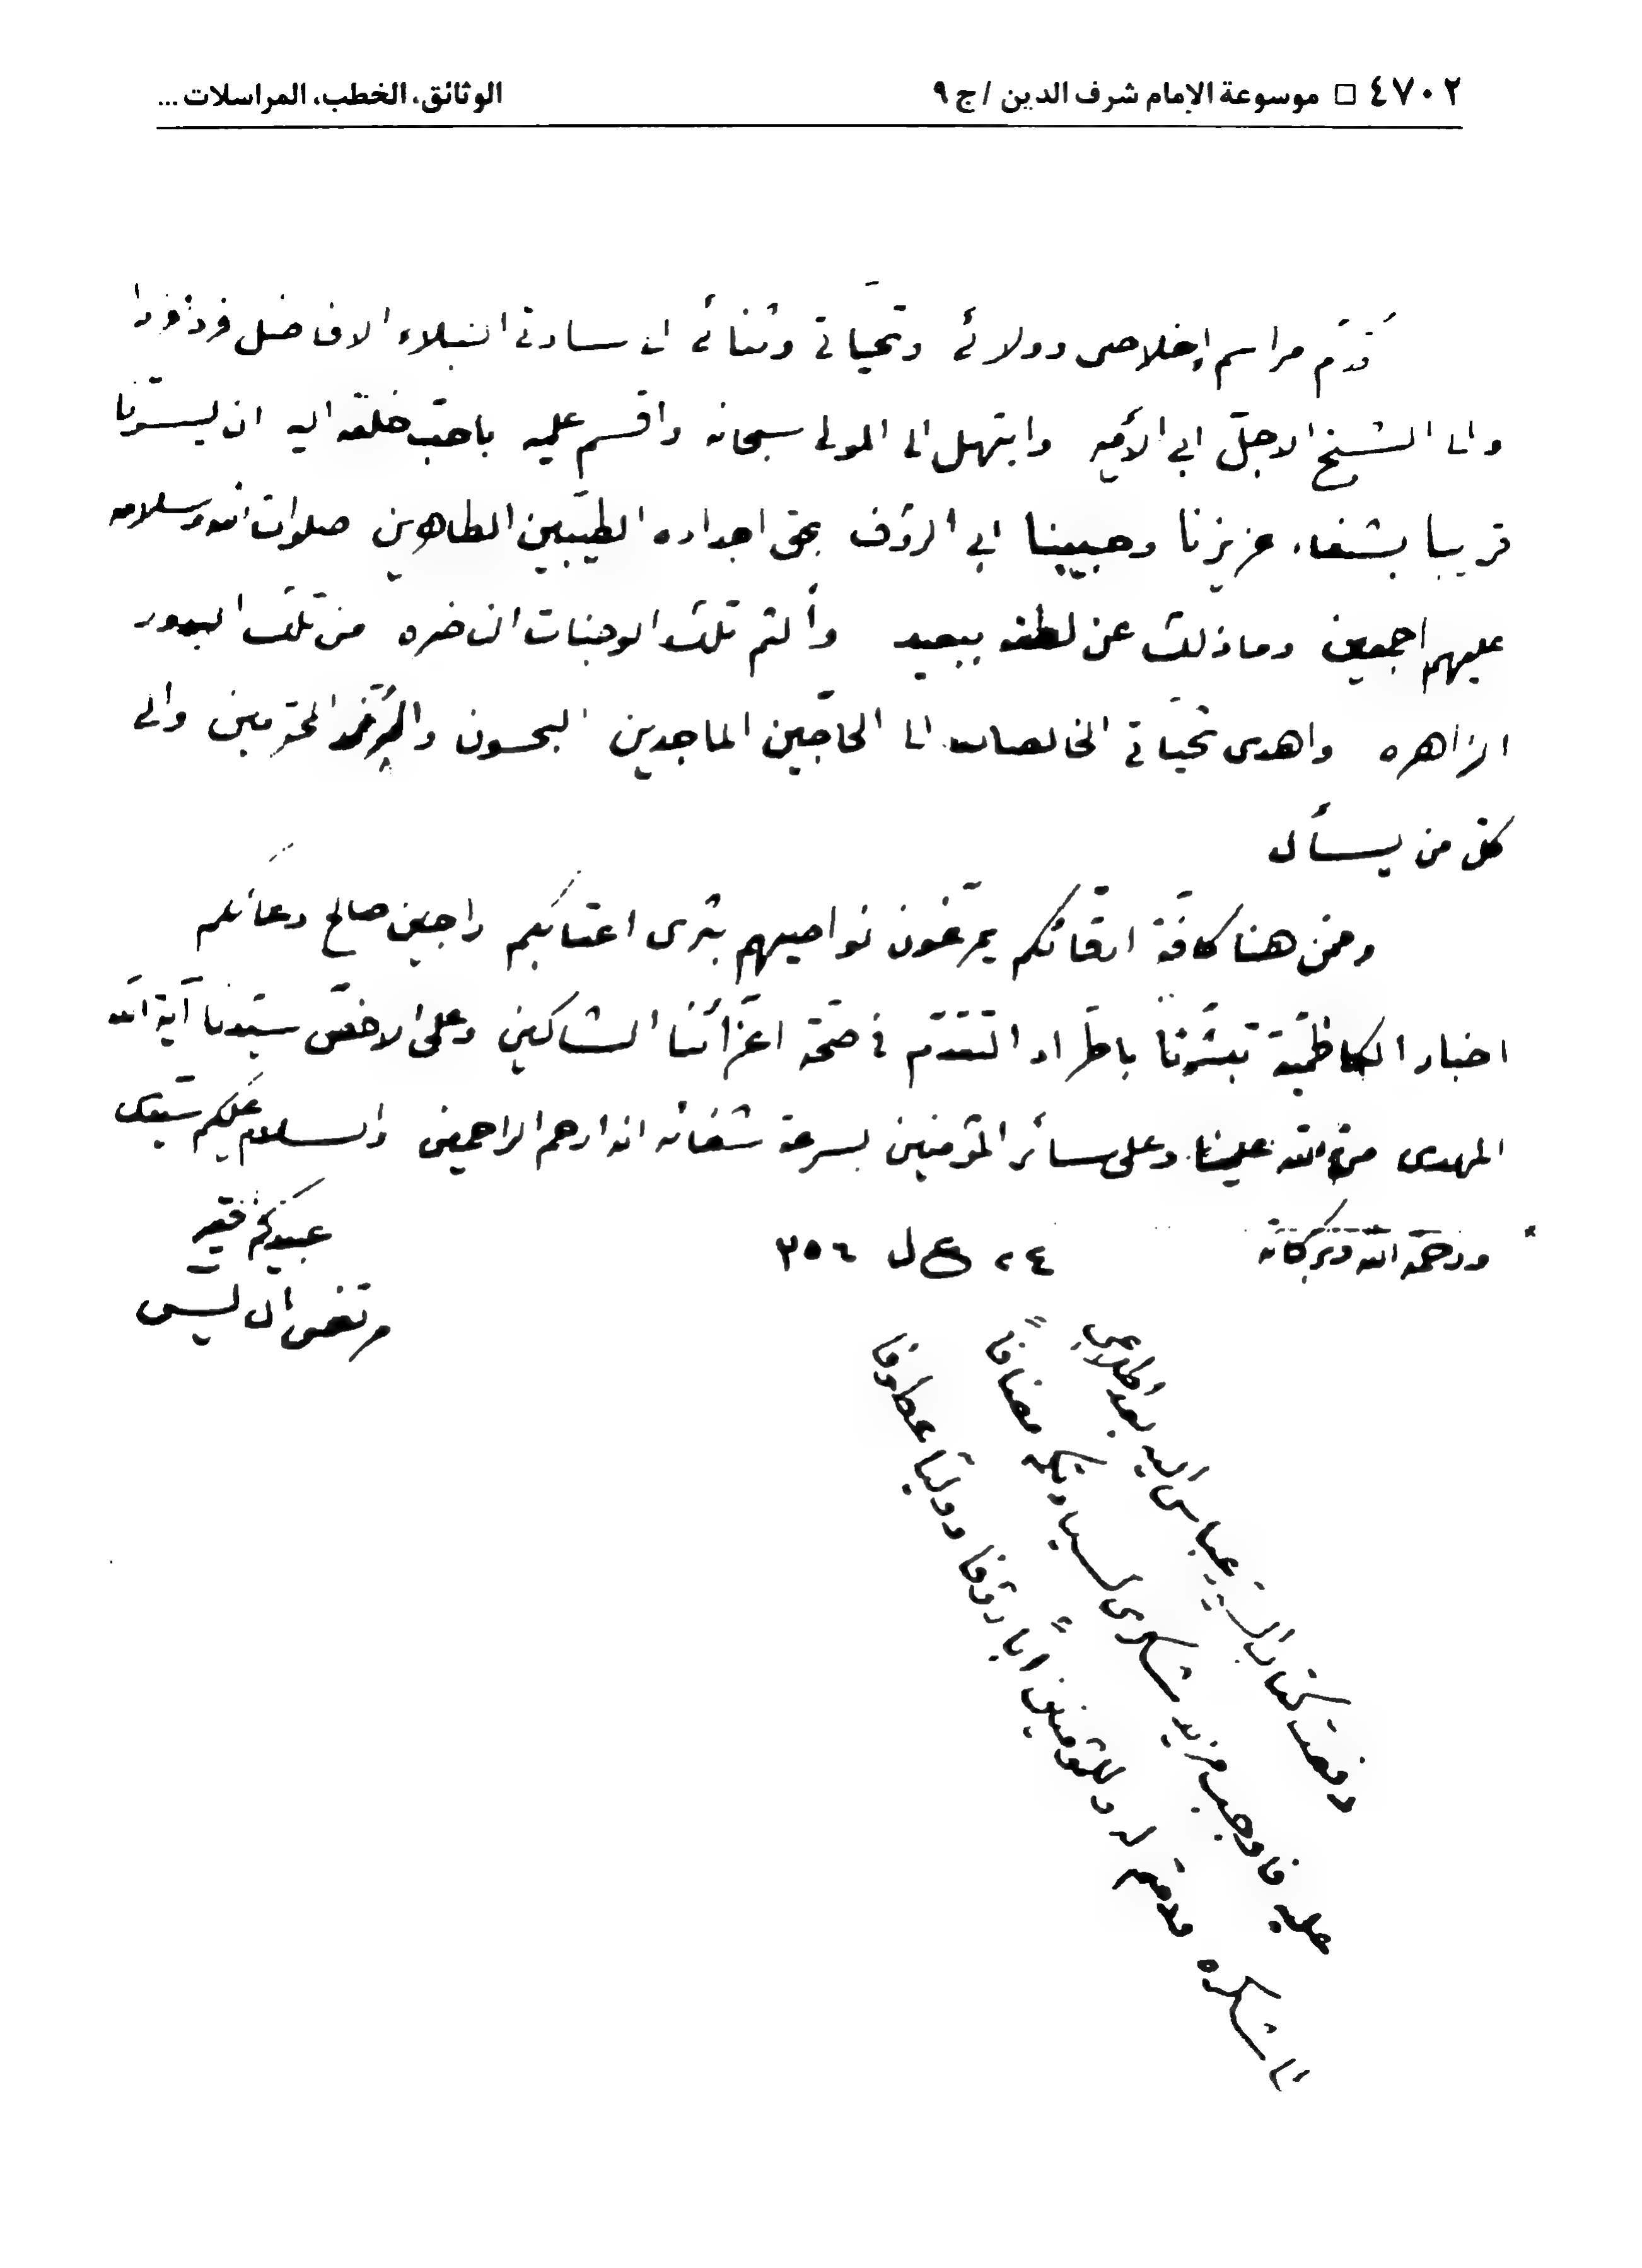 ٤٧٠٢ □ موسوعة الإمام شرف الدين / ج٩
الوثائق، الخطب، المراسلات ...
أقدّم مراسم إخلاصي وولائي وتحيّاتي وثنائي الى سادتي النبلاء الافاضل فردا فردا
والى الشيخ الاجلّ ابي الأمير وابتهل الى المولى سبحانه واقسم عليه باحبّ خلقه اليه ان يسرّنا
قريبا بشفاء عزيزنا وحبيبنا ابي الرؤف بحق اجداده الطيّبين الطاهرين صلوات الله وسلامه
عليهم اجمعين وما ذلك عن لطفه ببعيد وألثم تلك الوجنات الناضره من تلك البدور
الزاهره واهدى تحيّاتي الخالصات الى الحاجّين الماجدين البحسون المحترمين والى
كل من يسأل
ومن هنا كافّة ارقائكم يمرّغون نواصيهم بثرى اعتابكم راجين صالح دعائكم
اخبار الكاظميّة تبشّرنا باطّراد التقدّم في صحّة اعزّائنا الشاكين وعلى الاخصّ سيّدنا آية الله
المهدى منّ الله علينا وعلى سائر المؤمنين بسرعة شفائه انه ارحم الراحمين والسلام عليكم سيّدى
ورحمة الله وبركاته
٢٤ ع ل ٣٥٦
عبدكم فقير
مرتضى ال يس
دفعت كتاب السيّد عباس اليه بعد اطلاعي
عليه فاوجب مزيد شكرى لسيادتكم مضافاً
لما اشكره دمتم له وللمؤمنين أباً رؤفا ووليّا عطوفا